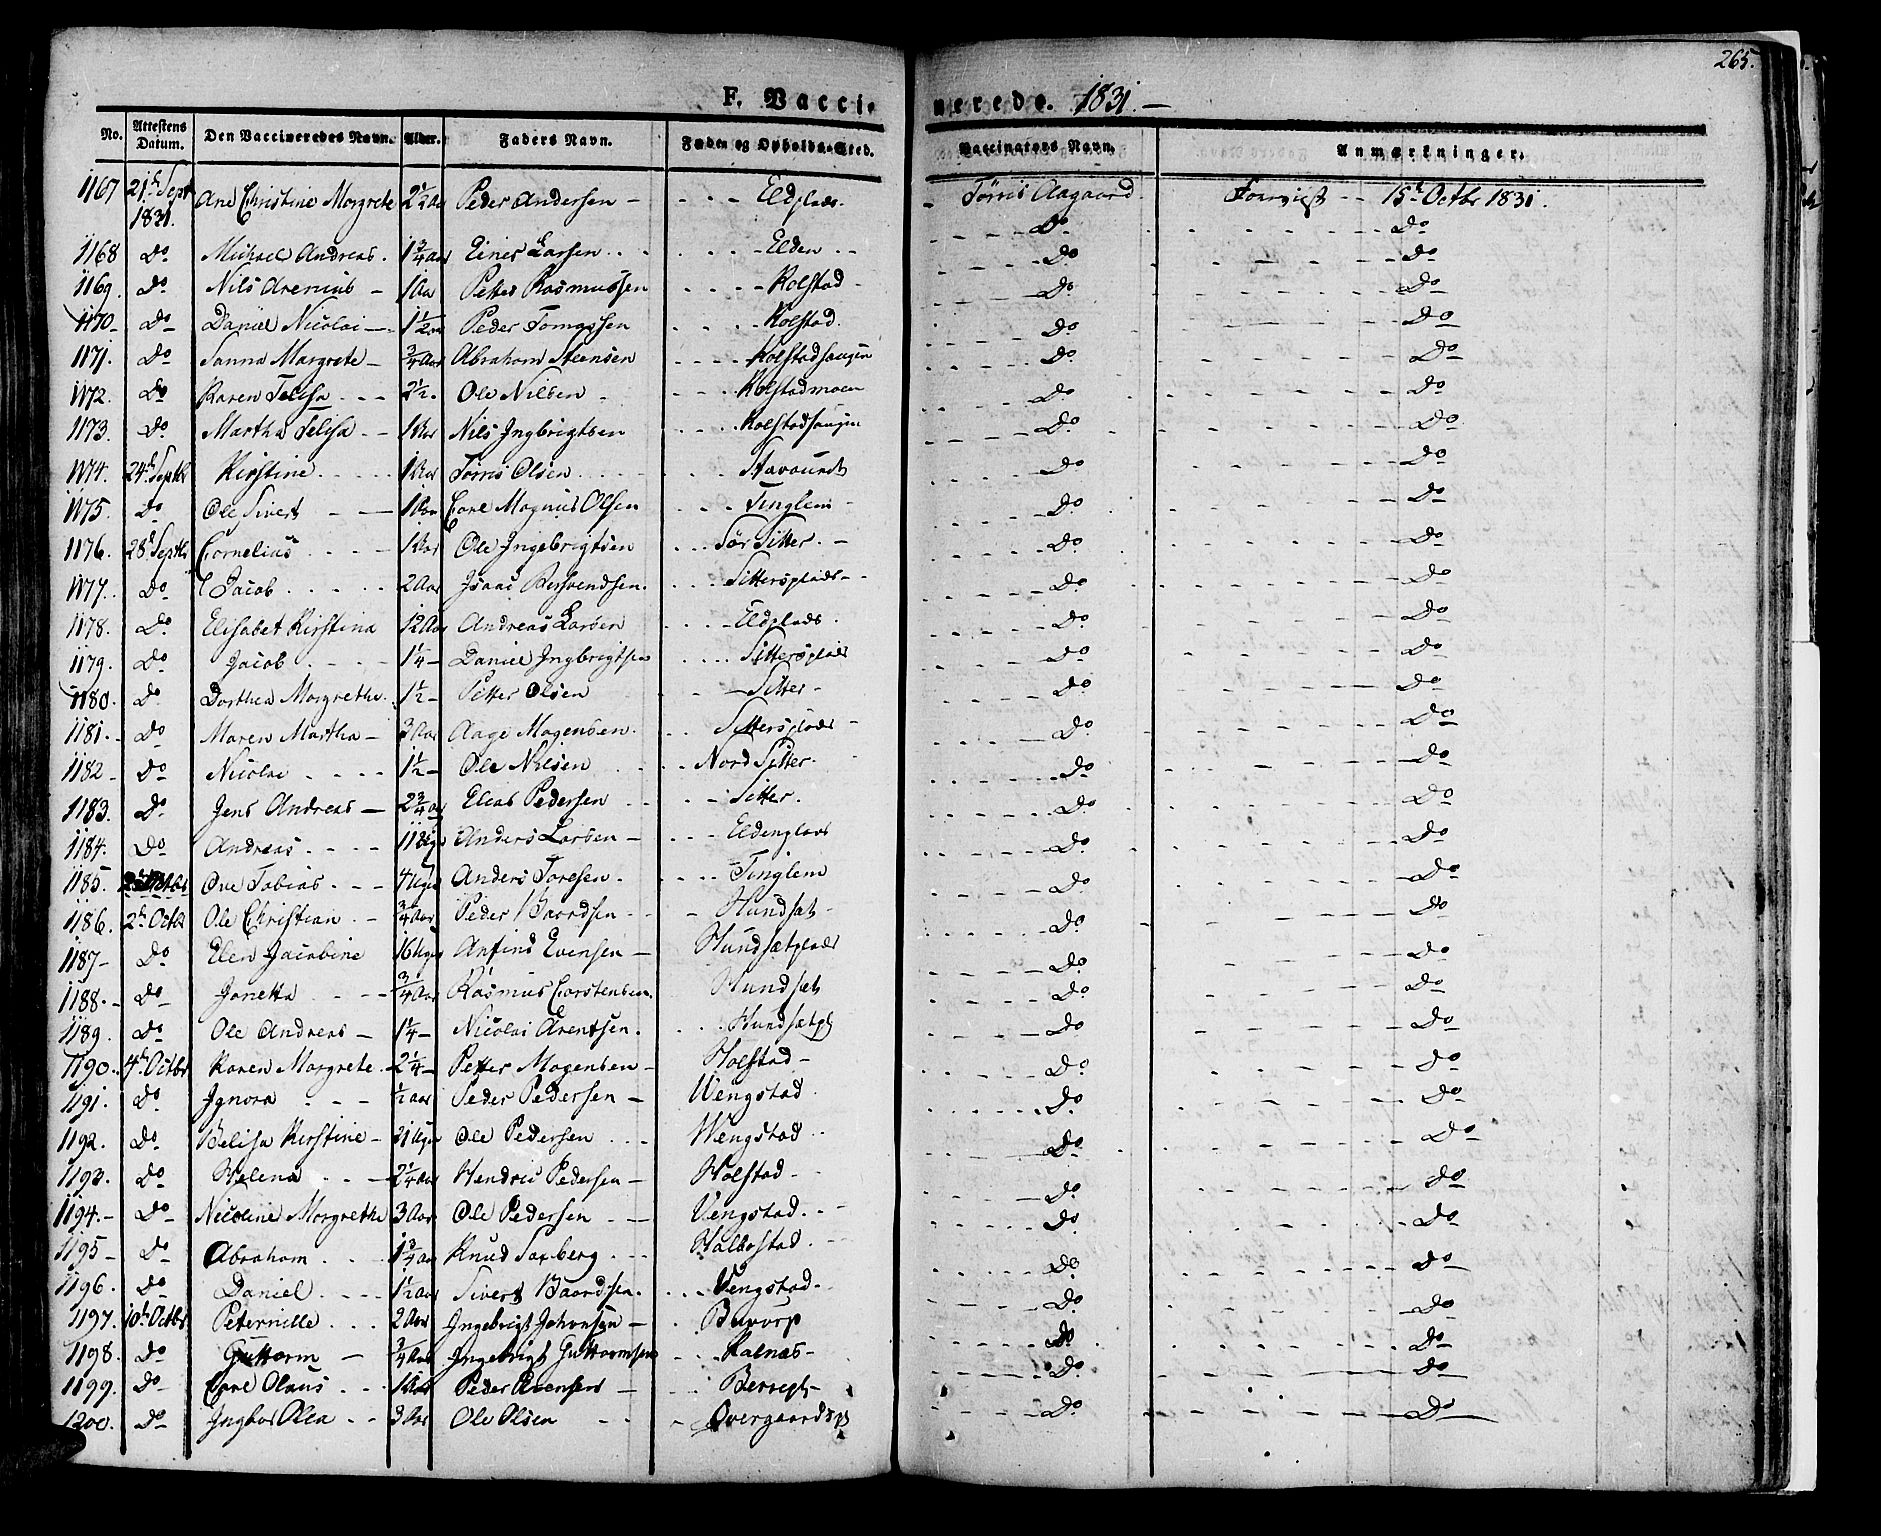 265.
F. Vaccinerede. 1831. —
No. Attestens Datum. Den Vaccineredes Navn. Alder. Faders Navn. Føde- og Opholds-Sted. Vaccinators Navn. Anmærkninger.
1167 21de Sept 1831. Ane Christine Margrete 2½ Aar Peder Andersen — Eldplads. Tørris Aagaard 15de Octbr 1831.
Do Do
1168 Do Michael Andreas. 1¾ Aar Einer Larsen Elden Do Do
1169. Do Nils Arenius — 1 Aar Petter Rasmussen Kolstad Do Do
1170 Do Daniel Nicolai — 1½ Aar Peder Tomassen Kolstad. Do Do
1171. Do Sanna Margrete — ¾ Aar Abraham Steensen Kolstadhaugen Do Do
1172. Do Karen Telisa 2½ Ole Nilsen Kolstadmoen Do Do
1173. Do Martha Felisa 1 Aar Nils Ingbrigtsen Kolstadhaugen Do Do
1174. 24de Septbr Kirstine 1 Aar Tørris Olsen Do Do
1175. Do Ole Sivert 1 Aar Carl Magnus Olsen Tinglem Do Do
1176. 28de Septbr Cornelius 1 Aar Ole Ingebrigtsen Sør Sitter. — Do Do
1177. Do Jacob 2 Aar Isaac Bersvendsen. Sittersplads Do Do
1178. Do Elisabet Kirstina 12 Aar Andreas Larsen Eldplads. Do Do
1179. Do Jacob 1¼ — Daniel Ingbrigtsen Sittersplads Do Do
1180. Do Dorthea Margrethe. 1½ — Petter Olsen Sitter Do Do
1181. Do Maren Martha — 3 Aar Aage Mogensen. Sittersplads Do Do
1182 Do Nicolai 1½ — Ole Nilsen Nord Sitter. Do Do
1183. Do Jens Andreas — 2¾ Aar Elias Pedersen Sitter. Do Do
1184. Do Andreas 11 Uger Anders Larsen — Do Do
1185. Ove Tobias 4 Uger Anders Toresen. Tinglem Do Do
1186. 2de Octbr Ole Christian ¾ Aar Peder Baardsen Hundsæt Do Do
1187 Do Elen Jacobine 16 Uger Anfind Evensen — Hundsætplads Do Do
1188. Do Jonetta ¾ Aar Rasmus Carstensen. Hundsæt Do Do
1189. Do Ole Andreas — 1¼ — Nicolai Arentsen. Hundsætpl Do Do
1190. 4de Octbr Karen Margrete. 2¼ — Petter Mogensen — Holstad Do Do
1191. Do Ignora ½ Aar Peder Pedersen — Wengstad Do Do
1192. Do Belisa Kirstine 21 Uger Ole Pedersen Wengstad Do Do
1193. Do Helena 2¼ Aar Hendric Pedersen — Holstad Do Do
1194. Do Nicoline Margrethe 3 Aar Ole Pedersen Vengstad Do Do
1195 Do Abraham 1¾ Aar Knud Saxberg Do Do
1196. Do Daniel 1½ Aar Sivert Baardsen. Vengstad Do Do
1197. 10de Octbr Peternille 2 Aar Ingebrigt Johansen — Do Do
1198. Do Guttorm — ¾ Aar Ingebrigt Guttormsen Kalnes Do Do
1199. Do Carl Olaus 1 Aar Peder — Do Do
1200. Do Ingbor Olea 3 Aar Ole Olsen Overgaardspl Do Do